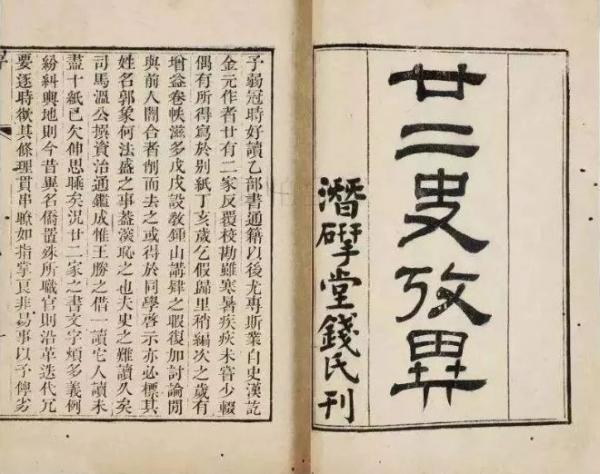 廿二史攷異
潛揅堂錢氏刊
予弱冠時好讀乙部書通籍以後尤專斯業自史漢訖
金元作者廿有二家反覆校勘雖寒暑疾疢未嘗少輟
偶有所得寫於別紙丁亥歲乞假歸里稍編次之歲有
增益卷帙滋多戊戌設教鍾山講肆之暇復加討論間
與前人闇合者削而去之或得於同學啓示亦必標其
姓名郭象何法盛之事葢深恥之也夫史之難讀久矣
司馬溫公撰資治通鑑成惟王勝之借一讀它人讀未
盡十紙已欠伸思睡矣況廿二家之書文字煩多義例
紛糾輿地則今昔異名僑置殊所職官則沿革迭代冗
要逐時欲其條理貫串瞭如指掌良非易事以予儜劣